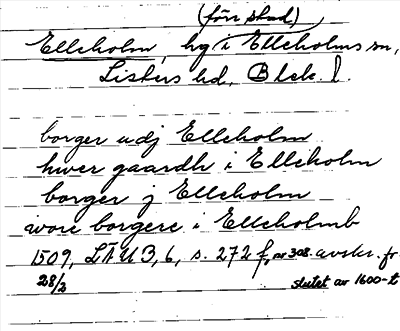 (förr stad)
Elleholm, hg i Elleholms sn,
Listers hd, Blek. l.
borger udj Elleholm
hwer gaardh i Elleholm
borger j Elleholm
wore borgere i Elleholmb
1509, LÄU 3, 6, s. 272 f, nr 308. avskr. fr.
28/3 slutet av 1600-t